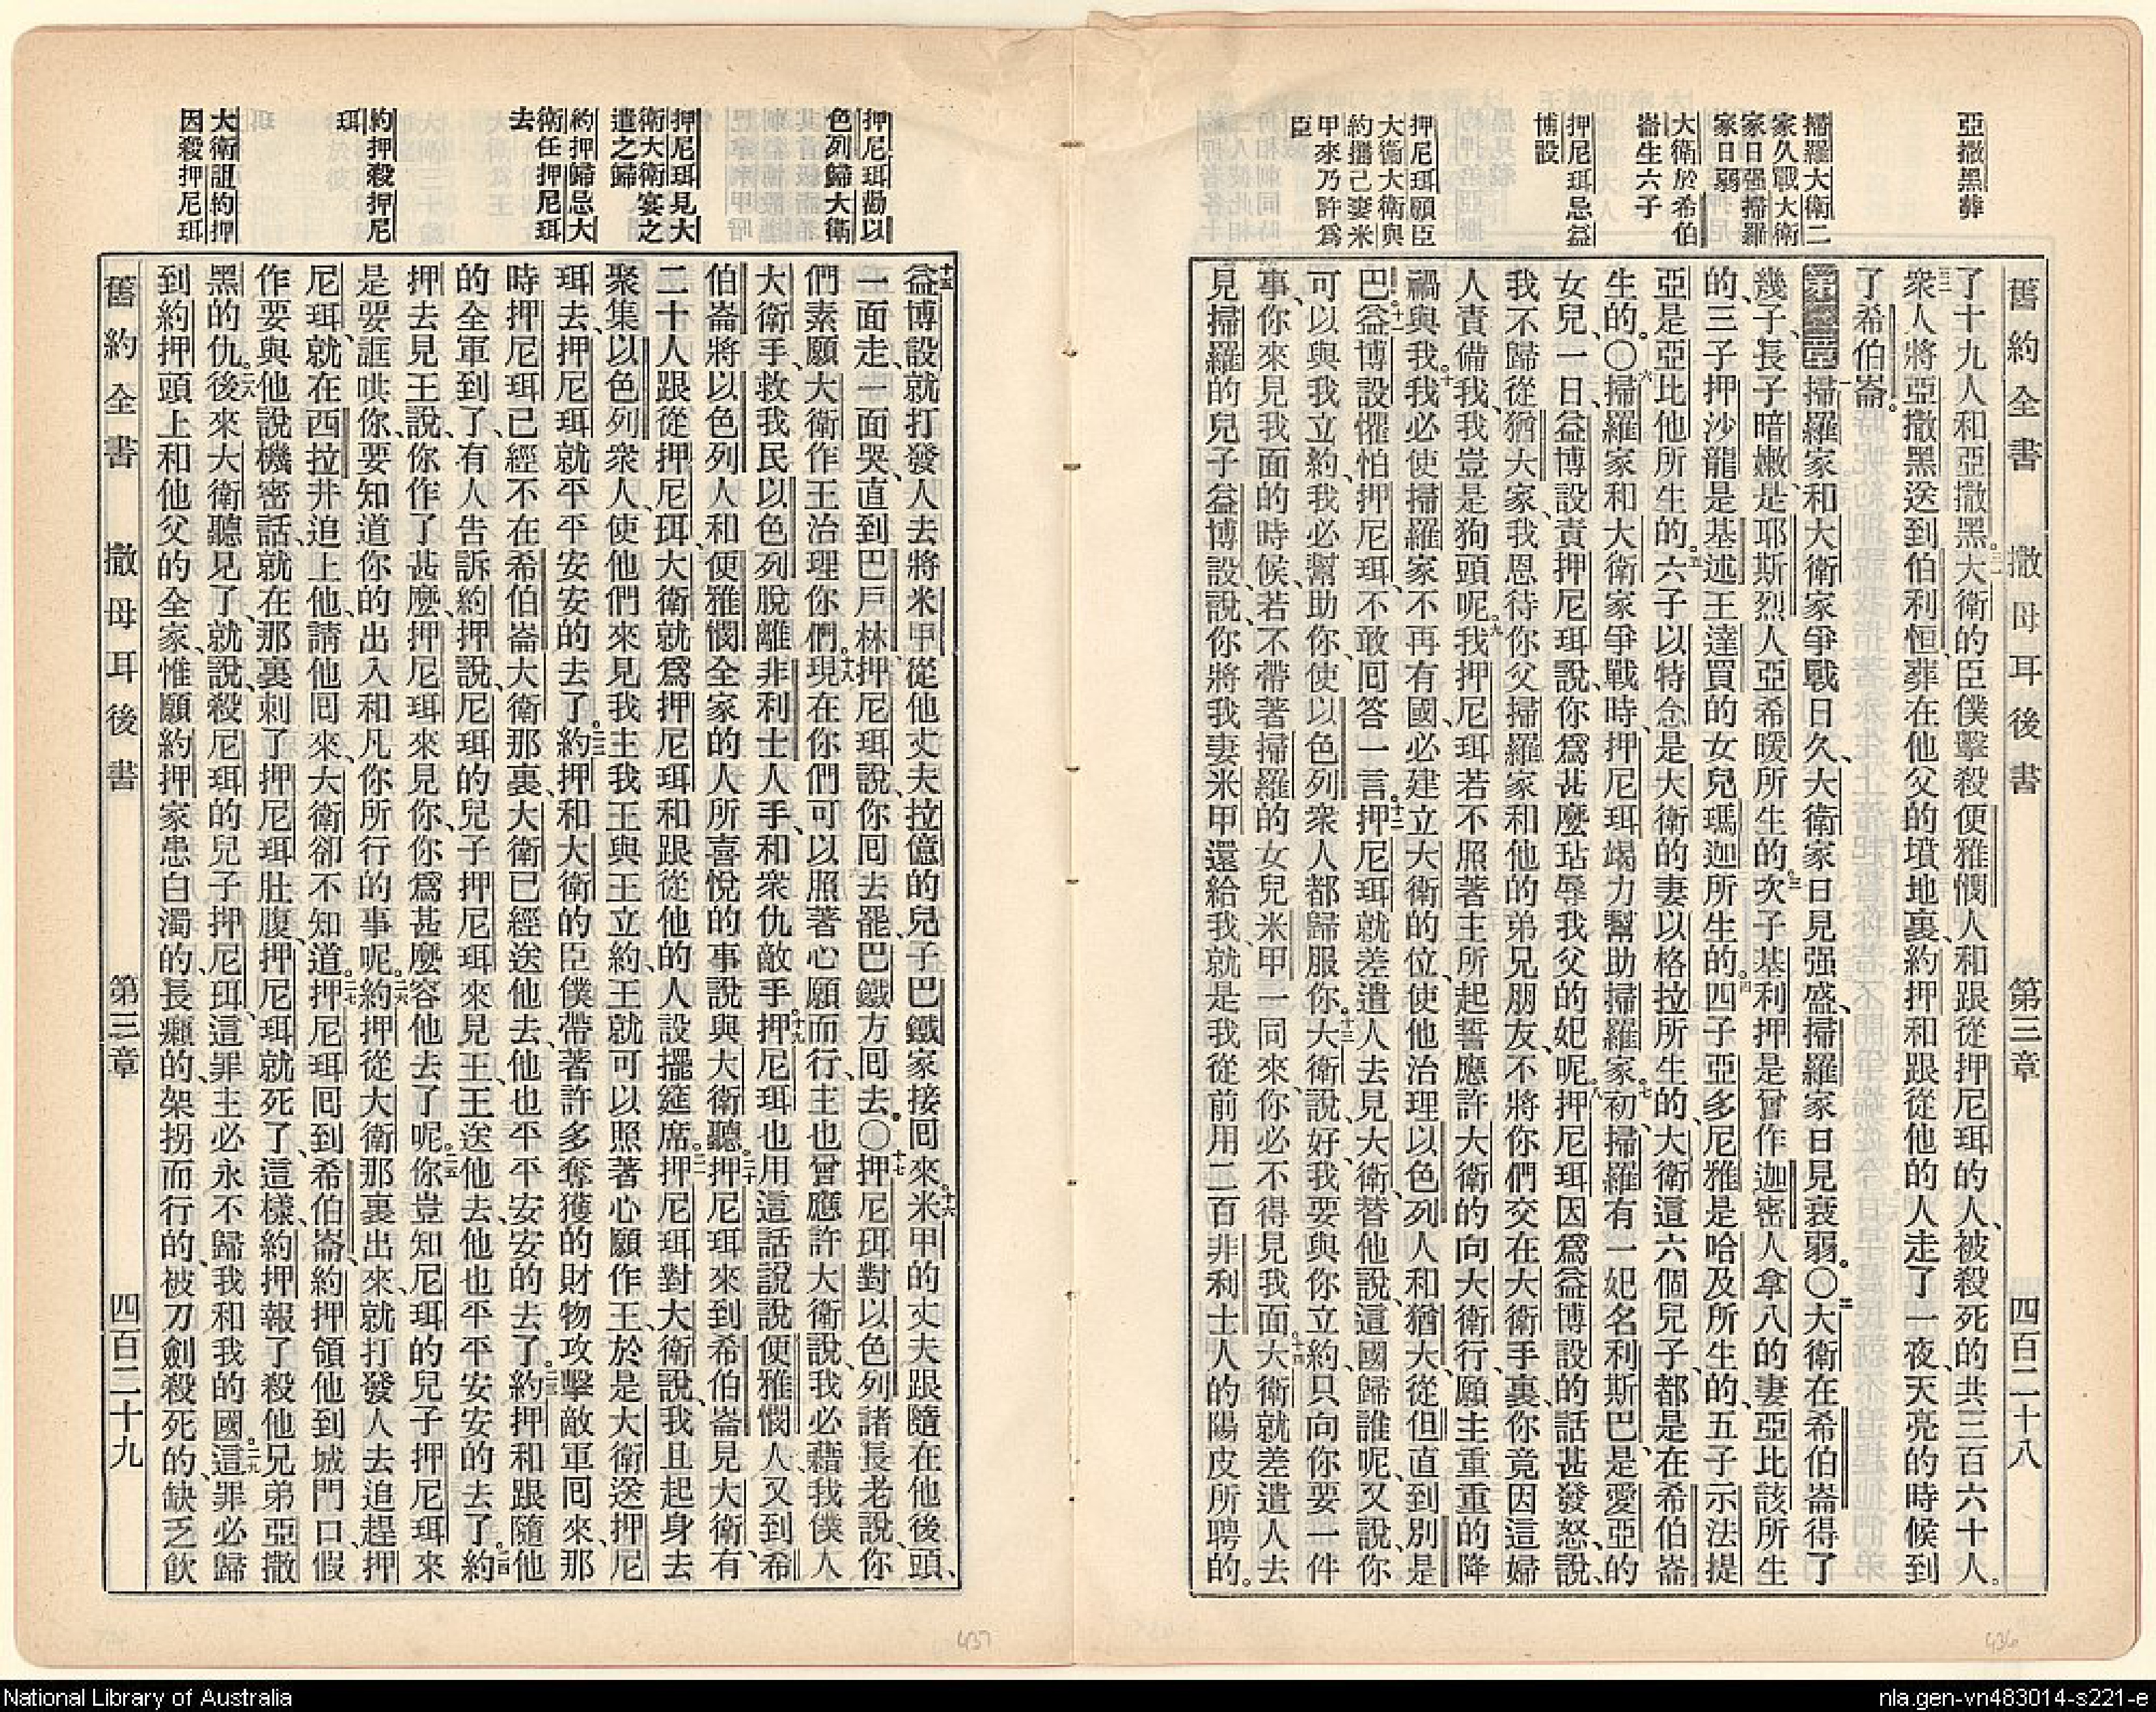 舊約全書 撒母耳後書 第三章 四百二十八
亞撒黑葬
掃羅大衛二
家久戰大衛
家日强掃羅
家日弱
大衛於希伯
崙生六子
押尼珥忌益
博設
押尼珥願臣
大衛大衛與
約攜己妻米
甲來乃許爲
臣
了十九人和亞撒黑。三一大衛的臣僕擊殺便雅憫人和跟從押尼珥的人、被殺死的共三百六十人。
三二衆人將亞撒黑送到伯利恒、葬在他父的墳地裏、約押和跟從他的人走了一夜、天亮的時候到
了希伯崙。
第三章一掃羅家和大衛家爭戰日久、大衛家日見强盛、掃羅家日見衰弱。〇二大衛在希伯崙得了
幾子、長子暗嫩、是耶斯烈人亞希暖所生的。三次子基利押是曾作迦密人拿八的妻亞比該所生
的、三子押沙龍是基述王達買的女兒瑪迦所生的。四四子亞多尼雅是哈及所生的、五子示法提
亞是亞比他所生的。五六子以特念是大衛的妻以格拉所生的、大衛這六個兒子、都是在希伯崙
生的。〇六掃羅家和大衛家爭戰時、押尼珥竭力幫助掃羅家。七初、掃羅有一妃名利斯巴、是愛亞的
女兒、一日、益博設責押尼珥說、你爲甚麼玷辱我父的妃呢。八押尼珥因爲益博設的話甚發怒、說、
我不歸從猶大家、我恩待你父掃羅家和他的弟兄朋友、不將你們交在大衛手裏、你竟因這婦
人責備我、我豈是狗頭呢。九我押尼珥若不照著主所起誓應許大衛的向大衛行、願主重重的降
禍與我。十我必使掃羅家不再有國、必建立大衛的位、使他治理以色列人和猶大、從但直到別是
巴。十一益博設懼怕押尼珥、不敢回答一言。十二押尼珥就差遣人去見大衛、替他說、這國歸誰呢、又說、你
可以與我立約、我必幫助你、使以色列衆人都歸服你。十三大衛說、好、我要與你立約、只向你要一件
事、你來見我面的時候、若不帶著掃羅的女兒米甲一同來、你必不得見我面。十四大衛就差遣人去
見掃羅的兒子益博設、說、你將我妻米甲還給我、就是我從前用二百非利士人的陽皮所聘的。
押尼珥勸以
色列歸大衛
押尼珥見大
衛大衛宴之
遣之歸
約押歸忌大
衛任押尼珥
去
約押殺押尼
珥
大衛詛約押
因殺押尼珥
十五益博設就打發人去將米甲從他丈夫拉億的兒子巴鐵家接囘來。十六米甲的丈夫跟隨在他後頭、
一面走、一面哭、直到巴戶林、押尼珥說、你囘去罷、巴鐵方囘去。〇十七押尼珥對以色列諸長老說、你
們素願大衛作王治理你們。十八現在你們可以照著心願而行、主也曾應許大衛說、我必藉我僕人
大衛手、救我民以色列脫離非利士人手、和衆仇敵手。十九押尼珥也用這話說說便雅憫人、又到希
伯崙將以色列人和便雅憫全家的人所喜悅的事說與大衛聽。二十押尼珥來到希伯崙見大衛、有
二十人跟從押尼珥、大衛就爲押尼珥和跟從他的人設擺筵席。二一押尼珥對大衛說、我且起身去
聚集以色列衆人、使他們來見我主我王與王立約、王就可以照著心願作王、於是大衛送押尼
珥去、押尼珥就平平安安的去了。二二約押和大衛的臣僕帶著許多奪獲的財物攻擊敵軍囘來、那
時押尼珥已經不在希伯崙大衛那裏、大衛已經送他去、他也平平安安的去了。二三約押和跟隨他
的全軍到了、有人告訴約押說、尼珥的兒子押尼珥來見王、王送他去、他也平平安安的去了。二四約
押去見王、說、你作了甚麼、押尼珥來見你、你爲甚麼容他去了呢。二五你豈知尼珥的兒子押尼珥來
是要誆哄你、要知道你的出入和凡你所行的事呢。二六約押從大衛那裏出來、就打發人去追趕押
尼珥、就在西拉井追上他、請他囘來、大衛卻不知道。二七押尼珥囘到希伯崙、約押領他到城門口、假
作要與他說機密話、就在那裏刺了押尼珥肚腹、押尼珥就死了、這樣、約押報了殺他兄弟亞撒
黑的仇。二八後來大衛聽見了、就說、殺尼珥的兒子押尼珥、這罪主必永不歸我和我的國。二九這罪必歸
到約押頭上和他父的全家、惟願約押家患白濁的、長癩的、架拐而行的、被刀劍殺死的、缺乏飲
舊約全書 撒母耳後書 第三章 四百二十九
437
436
National Library of Australia
nla.gen-vn483014-s221-e